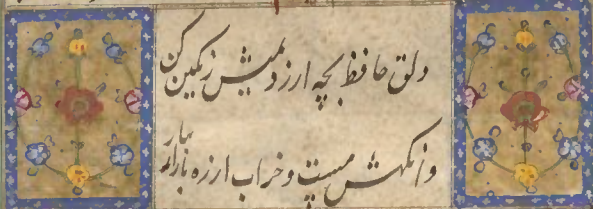 دلق حافظ بچه ارزد بمیش رنگین کن
وانگهش مست و خراب از ره بازار بیار